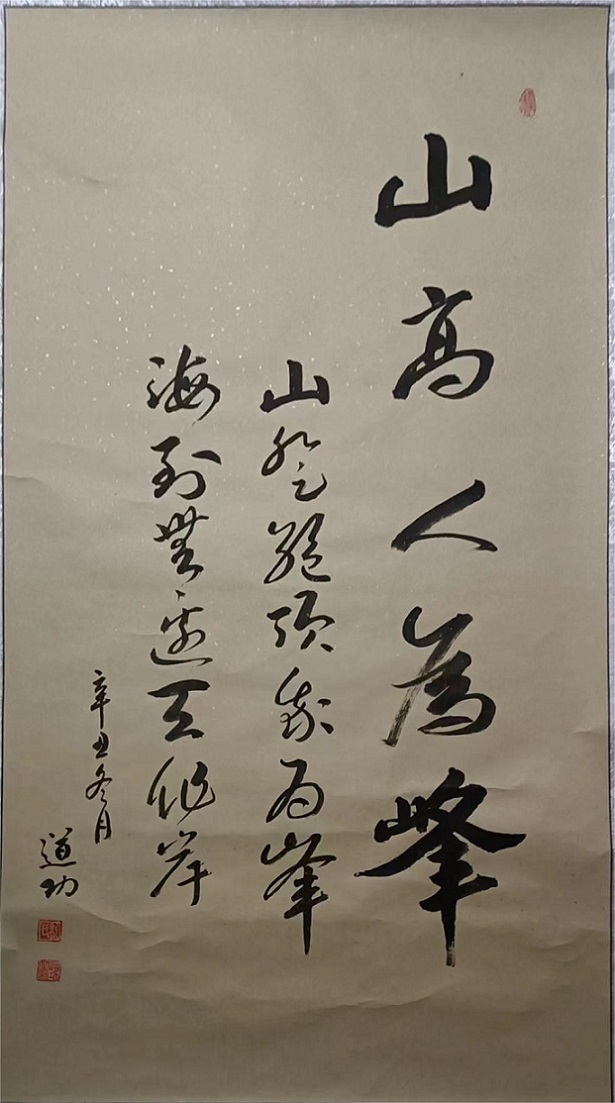 山高人為峰
山登絕頂我为峰
海到無邊天作岸
辛丑冬月
道功